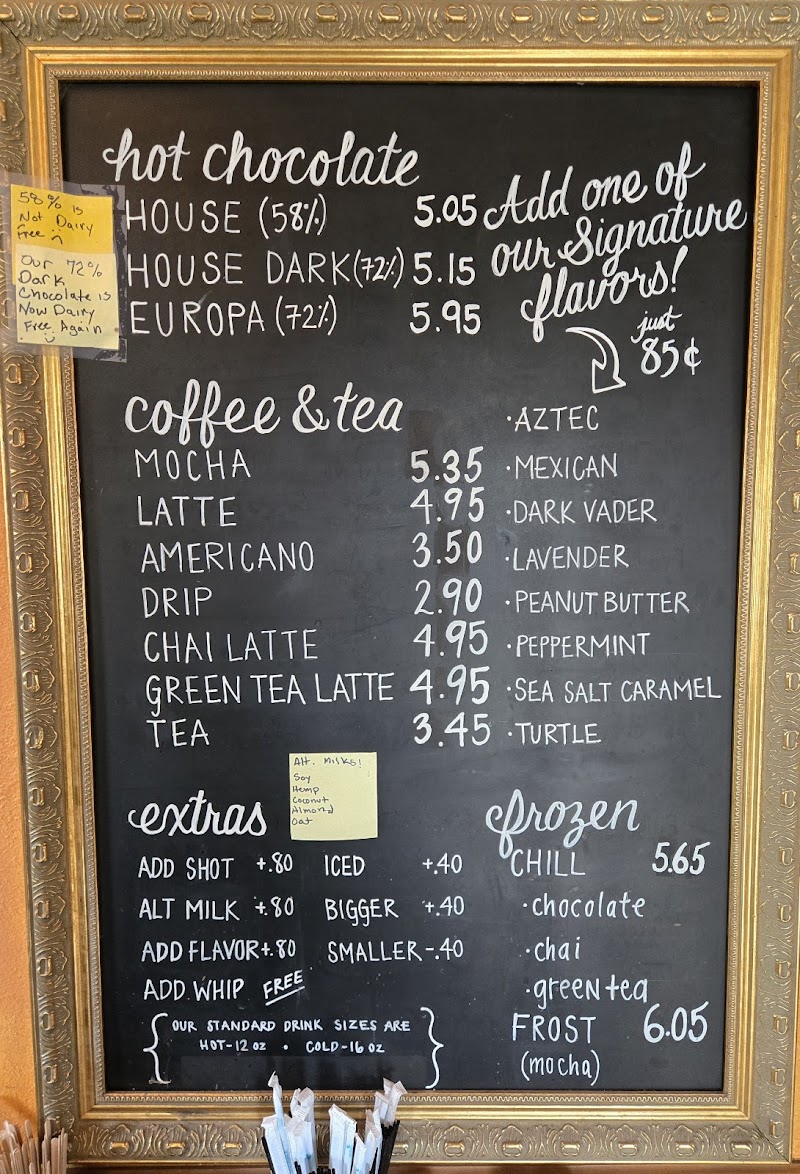 hot chocolate
HOUSE (58%) 5.05
HOUSE DARK (72%) 5.15
EUROPA (72%) 5.95
58% is
Not Dairy
Free :(
Our 72%
Dark
Chocolate is
Now Dairy
Free Again
:)
Add one of
our Signature
flavors!
just
85¢
• AZTEC
• MEXICAN
• DARK VADER
• LAVENDER
• PEANUT BUTTER
• PEPPERMINT
• SEA SALT CARAMEL
• TURTLE
coffee & tea
MOCHA 5.35
LATTE 4.95
AMERICANO 3.50
DRIP 2.90
CHAI LATTE 4.95
GREEN TEA LATTE 4.95
TEA 3.45
Alt. Milks!
Soy
Hemp
Coconut
Almond
Oat
extras
ADD SHOT +.80 ICED +.40
ALT MILK +.80 BIGGER +.40
ADD FLAVOR +.80 SMALLER -.40
ADD WHIP FREE
{ OUR STANDARD DRINK SIZES ARE
HOT-12 OZ • COLD-16 OZ }
frozen
CHILL 5.65
• chocolate
• chai
• green tea
FROST 6.05
(mocha)